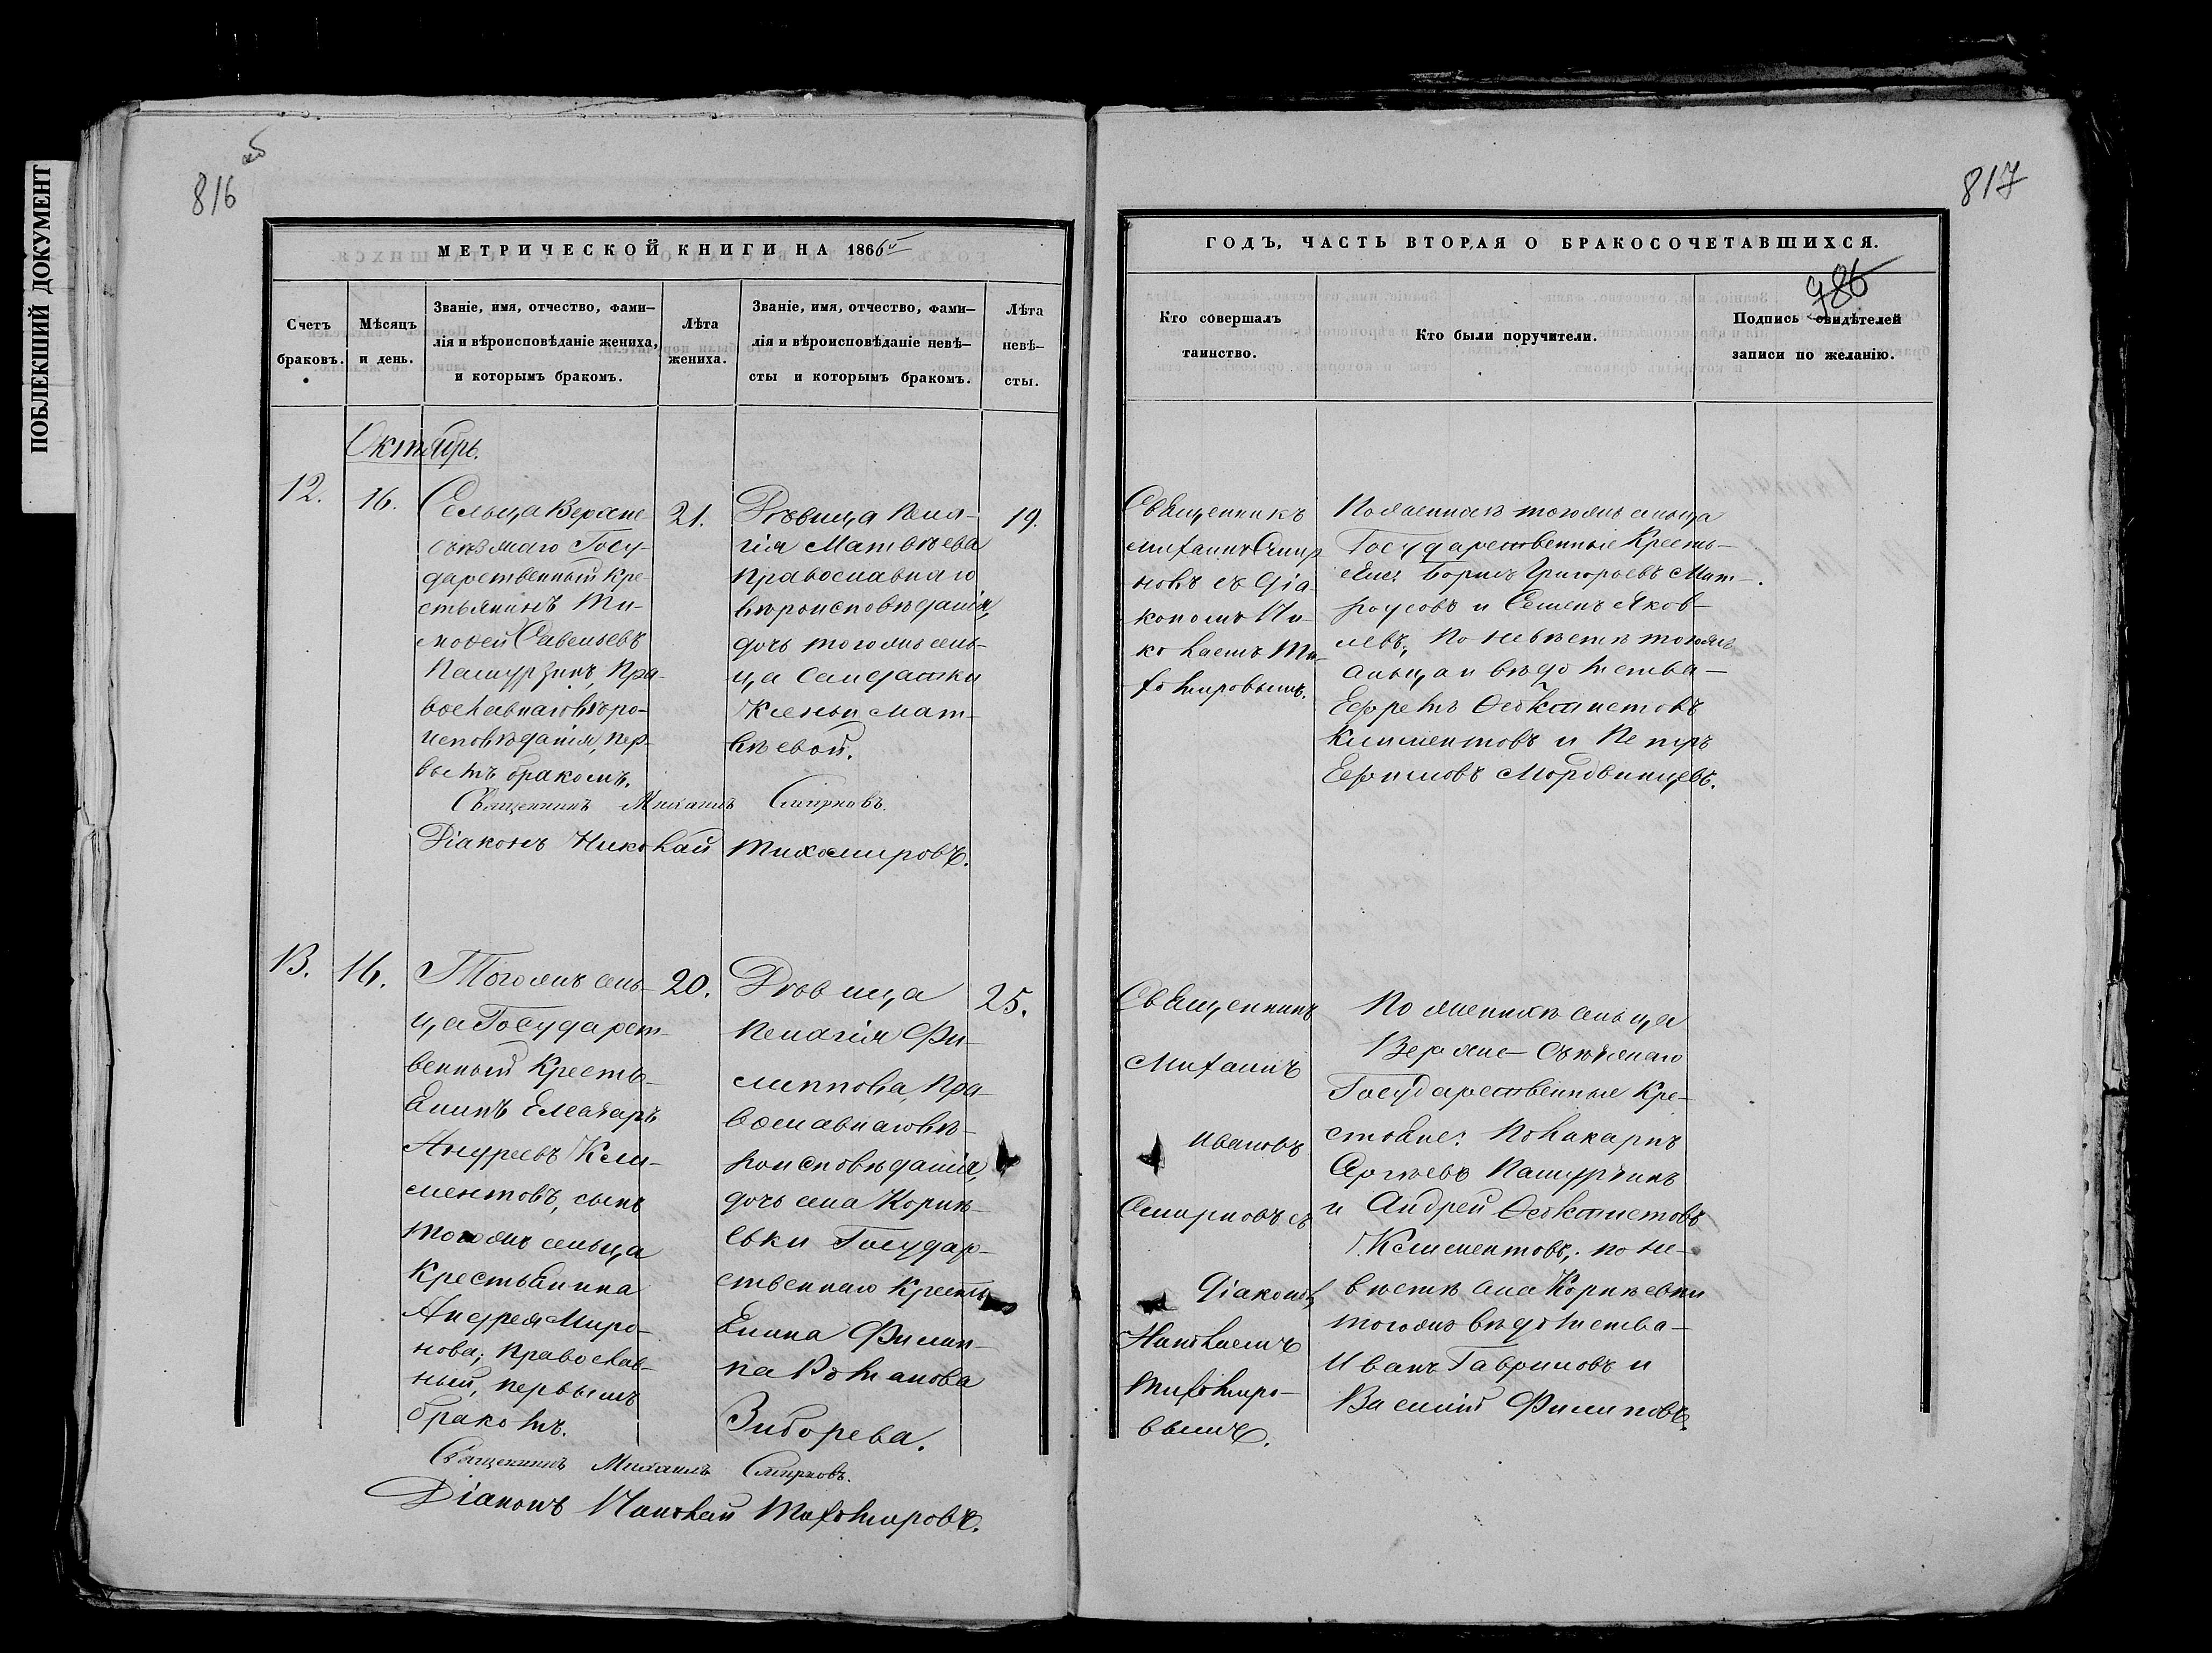 ПОБЛЕКШИЙ ДОКУМЕНТ
816 об
МЕТРИЧЕСКОЙ КНИГИ НА 1866й
Счетъ браковъ.
Мѣсяцъ и день.
Званіе, имя, отчество, фами-
лія и вѣроисповѣданіе жениха,
и которымъ бракомъ.
Лѣта жениха.
Званіе, имя, отчество, фами-
лія и вѣроисповѣданіе невѣ-
сты и которымъ бракомъ.
Лѣта невѣ-
сты.
Октябрь.
12.
16.
Сельца Верхне
съѣзжаго Госу-
дарственный Кре-
стьянинъ Ти-
мофей Савельевъ
Пашурзинъ, Пра-
вославнаго вѣро-
исповѣданія, пер-
вымъ бракомъ.
21.
Дѣвица Пела-
гія Матвѣева
православнаго
вѣроисповѣданія,
дочь тогожъ сель-
ца Солдатки
Ксеньи Мат-
вѣевой.
19.
Священникъ Михаилъ Смирновъ.
Діаконъ Николай Тихомировъ.
13.
16.
Тогожъ сель-
ца Государст-
венный Кресть-
янинъ Елеазаръ
Андреевъ Кли-
ментовъ, сынъ
тогожъ сельца
Крестьянина
Андрея Миро-
нова; православ-
ный, первымъ
бракомъ.
20.
Дѣвица
Пелагія Фи-
липпова, Пра-
вославнаго вѣ-
роисповѣданія,
дочь села Корнѣ-
евки Государ-
ственнаго Кресть
янина Филип-
па Романова
Зиборева.
25.
Священникъ Михаилъ Смирновъ.
Діаконъ Николай Тихомировъ.
817
ГОДЪ, ЧАСТЬ ВТОРАЯ О БРАКОСОЧЕТАВШИХСЯ.
986
Кто совершалъ
таинство.
Кто были поручители.
Подпись свидѣтелей
записи по желанію.
Священникъ
Михаилъ Смир
новъ съ Діа-
кономъ Ни-
колаемъ Ти-
хомировымъ.
По женихѣ тогожъ сельца
Государственные Кресть-
яне: Борисъ Григорьевъ Мат-
роусовъ и Семенъ Яков-
левъ; По невѣстѣ тогожъ
сельца и вѣдомства-
Ефремъ Феоктистовъ
Климентовъ и Петръ
Ефимовъ Мордвинцевъ.
Священникъ
Михаилъ
Ивановъ
Смирновъ съ
Діакономъ
Николаемъ
Тихоми­ро-
вымъ.
По женихѣ сельца
Верхне-Съѣзжаго
Государственные Кре-
стьяне: Поликарпъ
Сергѣевъ Пашурзинъ
и Андрей Феоктистовъ
Климентовъ; по не-
вѣстѣ села Корнѣевки
тогожъ вѣдомства-
Иванъ Гавриловъ и
Василій Филиповъ.